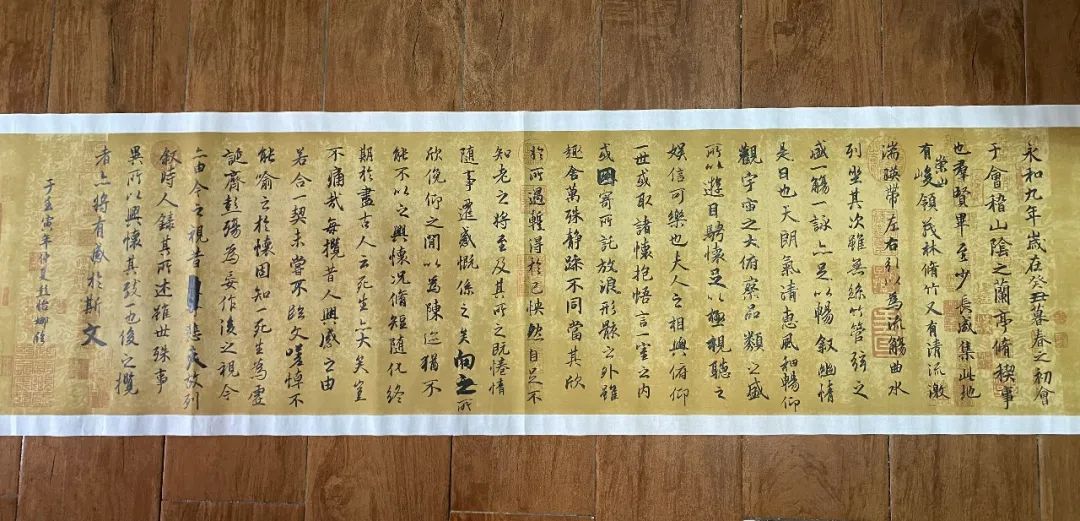 永和九年歲在癸丑暮春之初會
于會稽山陰之蘭亭脩禊事
也羣賢畢至少長咸集此地
有崇山峻領茂林脩竹又有清流激
湍暎帶左右引以為流觴曲水
列坐其次雖無絲竹管弦之
盛一觴一詠亦足以暢敘幽情
是日也天朗氣清惠風和暢仰
觀宇宙之大俯察品類之盛
所以遊目騁懷足以極視聽之
娛信可樂也夫人之相與俯仰
一世或取諸懷抱悟言一室之內
或因寄所託放浪形骸之外雖
趣舍萬殊靜躁不同當其欣
於所遇蹔得於己怏然自足不
知老之將至及其所之既惓情
隨事遷感慨係之矣向之所
欣俛仰之閒以為陳迹猶不
能不以之興懷況脩短隨化終
期於盡古人云死生亦大矣豈
不痛哉每攬昔人興感之由
若合一契未嘗不臨文嗟悼不
能喻之於懷固知一死生為虛
誕齊彭殤為妄作後之視今
亦由今之視昔悲夫故列
敘時人錄其所述雖世殊事
異所以興懷其致一也後之攬
者亦將有感於斯文
于壬寅年仲夏彭怡娜